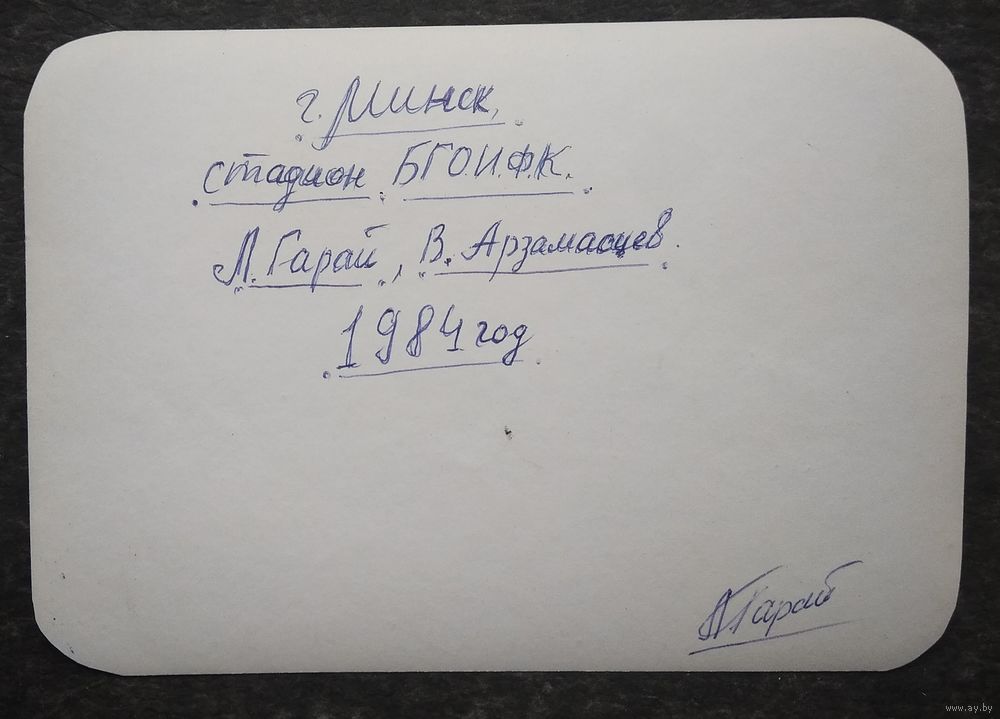 г. Минск,
стадион БГО.И.Ф.К.
Л. Гарай, В. Арзамасцев.
1984 год
Л.Гарай
www.ay.by